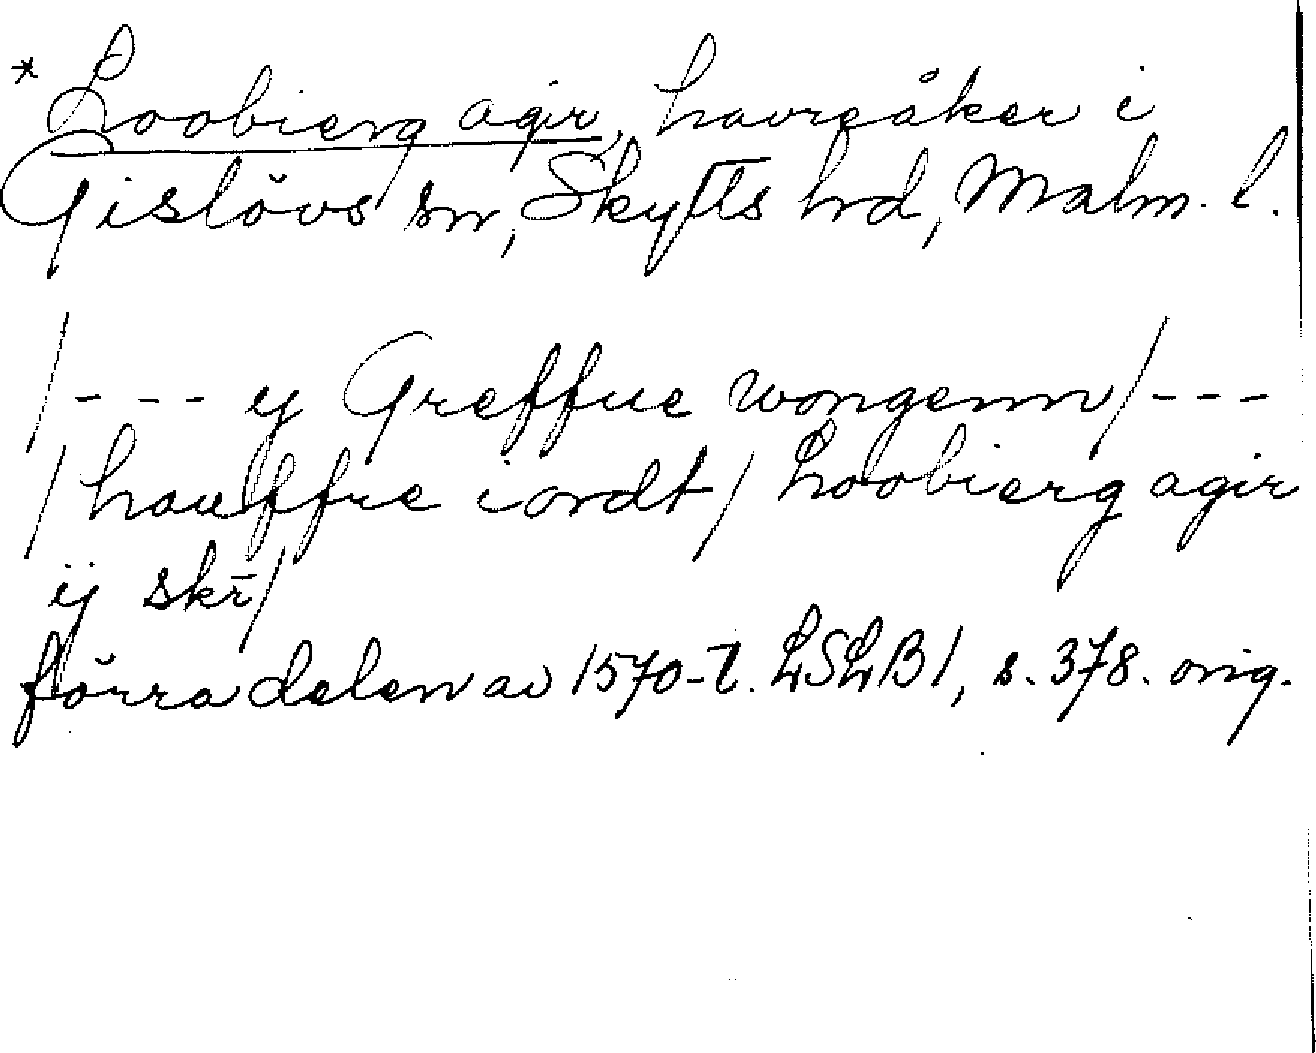 * Loobierg agir, havreåker i
Gislövs sn, Skytts hd, Malm. l.
/--- y Greffue wongenn/---
/hauffre iordt/ Loobierg agir
ij skr̄/
förra delen av 1570-t. LSLB1, s. 378. orig.